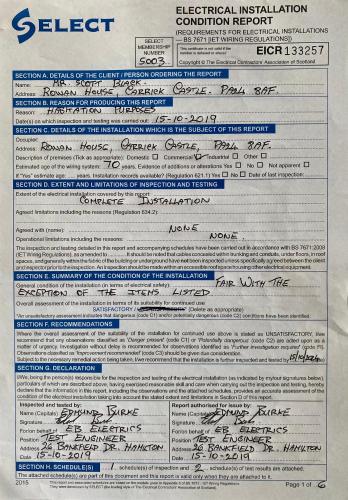 SELECT
ELECTRICAL INSTALLATION
CONDITION REPORT
(REQUIREMENTS FOR ELECTRICAL INSTALLATIONS
— BS 7671 [IET WIRING REGULATIONS])
SELECT MEMBERSHIP NUMBER
5003.
This certificate is not valid if the number is defaced or altered
EICR 133257
Copyright © The Electrical Contractors' Association of Scotland
SECTION A. DETAILS OF THE CLIENT / PERSON ORDERING THE REPORT
Name: MR SCOTT BLACK
Address: ROWAN HOUSE, CARRICK CASTLE. PA24 8AF.
SECTION B. REASON FOR PRODUCING THIS REPORT
Reason: HABITATION PURPOSES
Date(s) on which inspection and testing was carried out: 15-10-2019
SECTION C. DETAILS OF THE INSTALLATION WHICH IS THE SUBJECT OF THIS REPORT
Occupier:
Address: ROWAN HOUSE, CARRICK CASTLE, PA24 8AF.
Description of premises (Tick as appropriate): Domestic Commercial Industrial Other
Estimated age of the wiring system: 70 years. Evidence of additions or alterations Yes No Not apparent
If "Yes" estimate age: years. Installation records available? (Regulation 621.1) Yes No Date of last inspection:
SECTION D. EXTENT AND LIMITATIONS OF INSPECTION AND TESTING
Extent of the electrical installation covered by this report:
COMPLETE INSTALLATION
Agreed limitations including the reasons (Regulation 634.2):
Agreed with (name): NONE
Operational limitations including the reasons: NONE.
The inspection and testing detailed in this report and accompanying schedules have been carried out in accordance with BS 7671:2008
(IET Wiring Regulations), as amended to It should be noted that cables concealed within trunking and conduits, under floors, in roof
spaces, and generally within the fabric of the building or underground have not been inspected unless specifically agreed between the client
and inspector prior to the inspection. An inspection should be made within an accessible roof space housing other electrical equipment.
SECTION E. SUMMARY OF THE CONDITION OF THE INSTALLATION
General condition of the installation (in terms of electrical safety): FAIR WITH THE
EXCEPTION OF THE ITEMS LISTED
Overall assessment of the installation in terms of its suitability for continued use
SATISFACTORY / (Delete as appropriate)
*An unsatisfactory assessment indicates that dangerous (code C1) and/or potentially dangerous (code C2) conditions have been identified.
SECTION F. RECOMMENDATIONS
Where the overall assessment of the suitability of the installation for continued use above is stated as UNSATISFACTORY, I/we
recommend that any observations classified as 'Danger present' (code C1) or 'Potentially dangerous' (code C2) are acted upon as a
matter of urgency. Investigation without delay is recommended for observations identified as 'Further investigation required' (code FI).
Observations classified as 'Improvement recommended' (code C3) should be given due consideration.
Subject to the necessary remedial action being taken, I/we recommend that the installation is further inspected and tested by
SECTION G. DECLARATION
I/We, being the person(s) responsible for the inspection and testing of the electrical installation (as indicated by my/our signatures below),
particulars of which are described above, having exercised reasonable skill and care when carrying out the inspection and testing, hereby
declare that the information in this report, including the observations and the attached schedules, provides an accurate assessment of the
condition of the electrical installation taking into account the stated extent and limitations in Section D of this report.
Inspected and tested by: Report authorised for issue by:
Name (Capitals) EDMUND BURKE Name (Capitals) EDMUND BURKE
Signature Signature
For/on behalf of EB ELECTRICS For/on behalf of EB ELECTRICS
Position TEST ENGINEER Position TEST ENGINEER
Address 26 BANKFIELD DR. HAMILTON Address 26 BANKFIELD DR. HAMILTON
Date 15-10-2019 Date 15-10-2019
SECTION H. SCHEDULE(S) 1 schedule(s) of inspection and 2 schedule(s) of test results are attached.
The attached schedule(s) are part of this document and this report is valid only when they are attached to it.
2015
Page 1 of 6